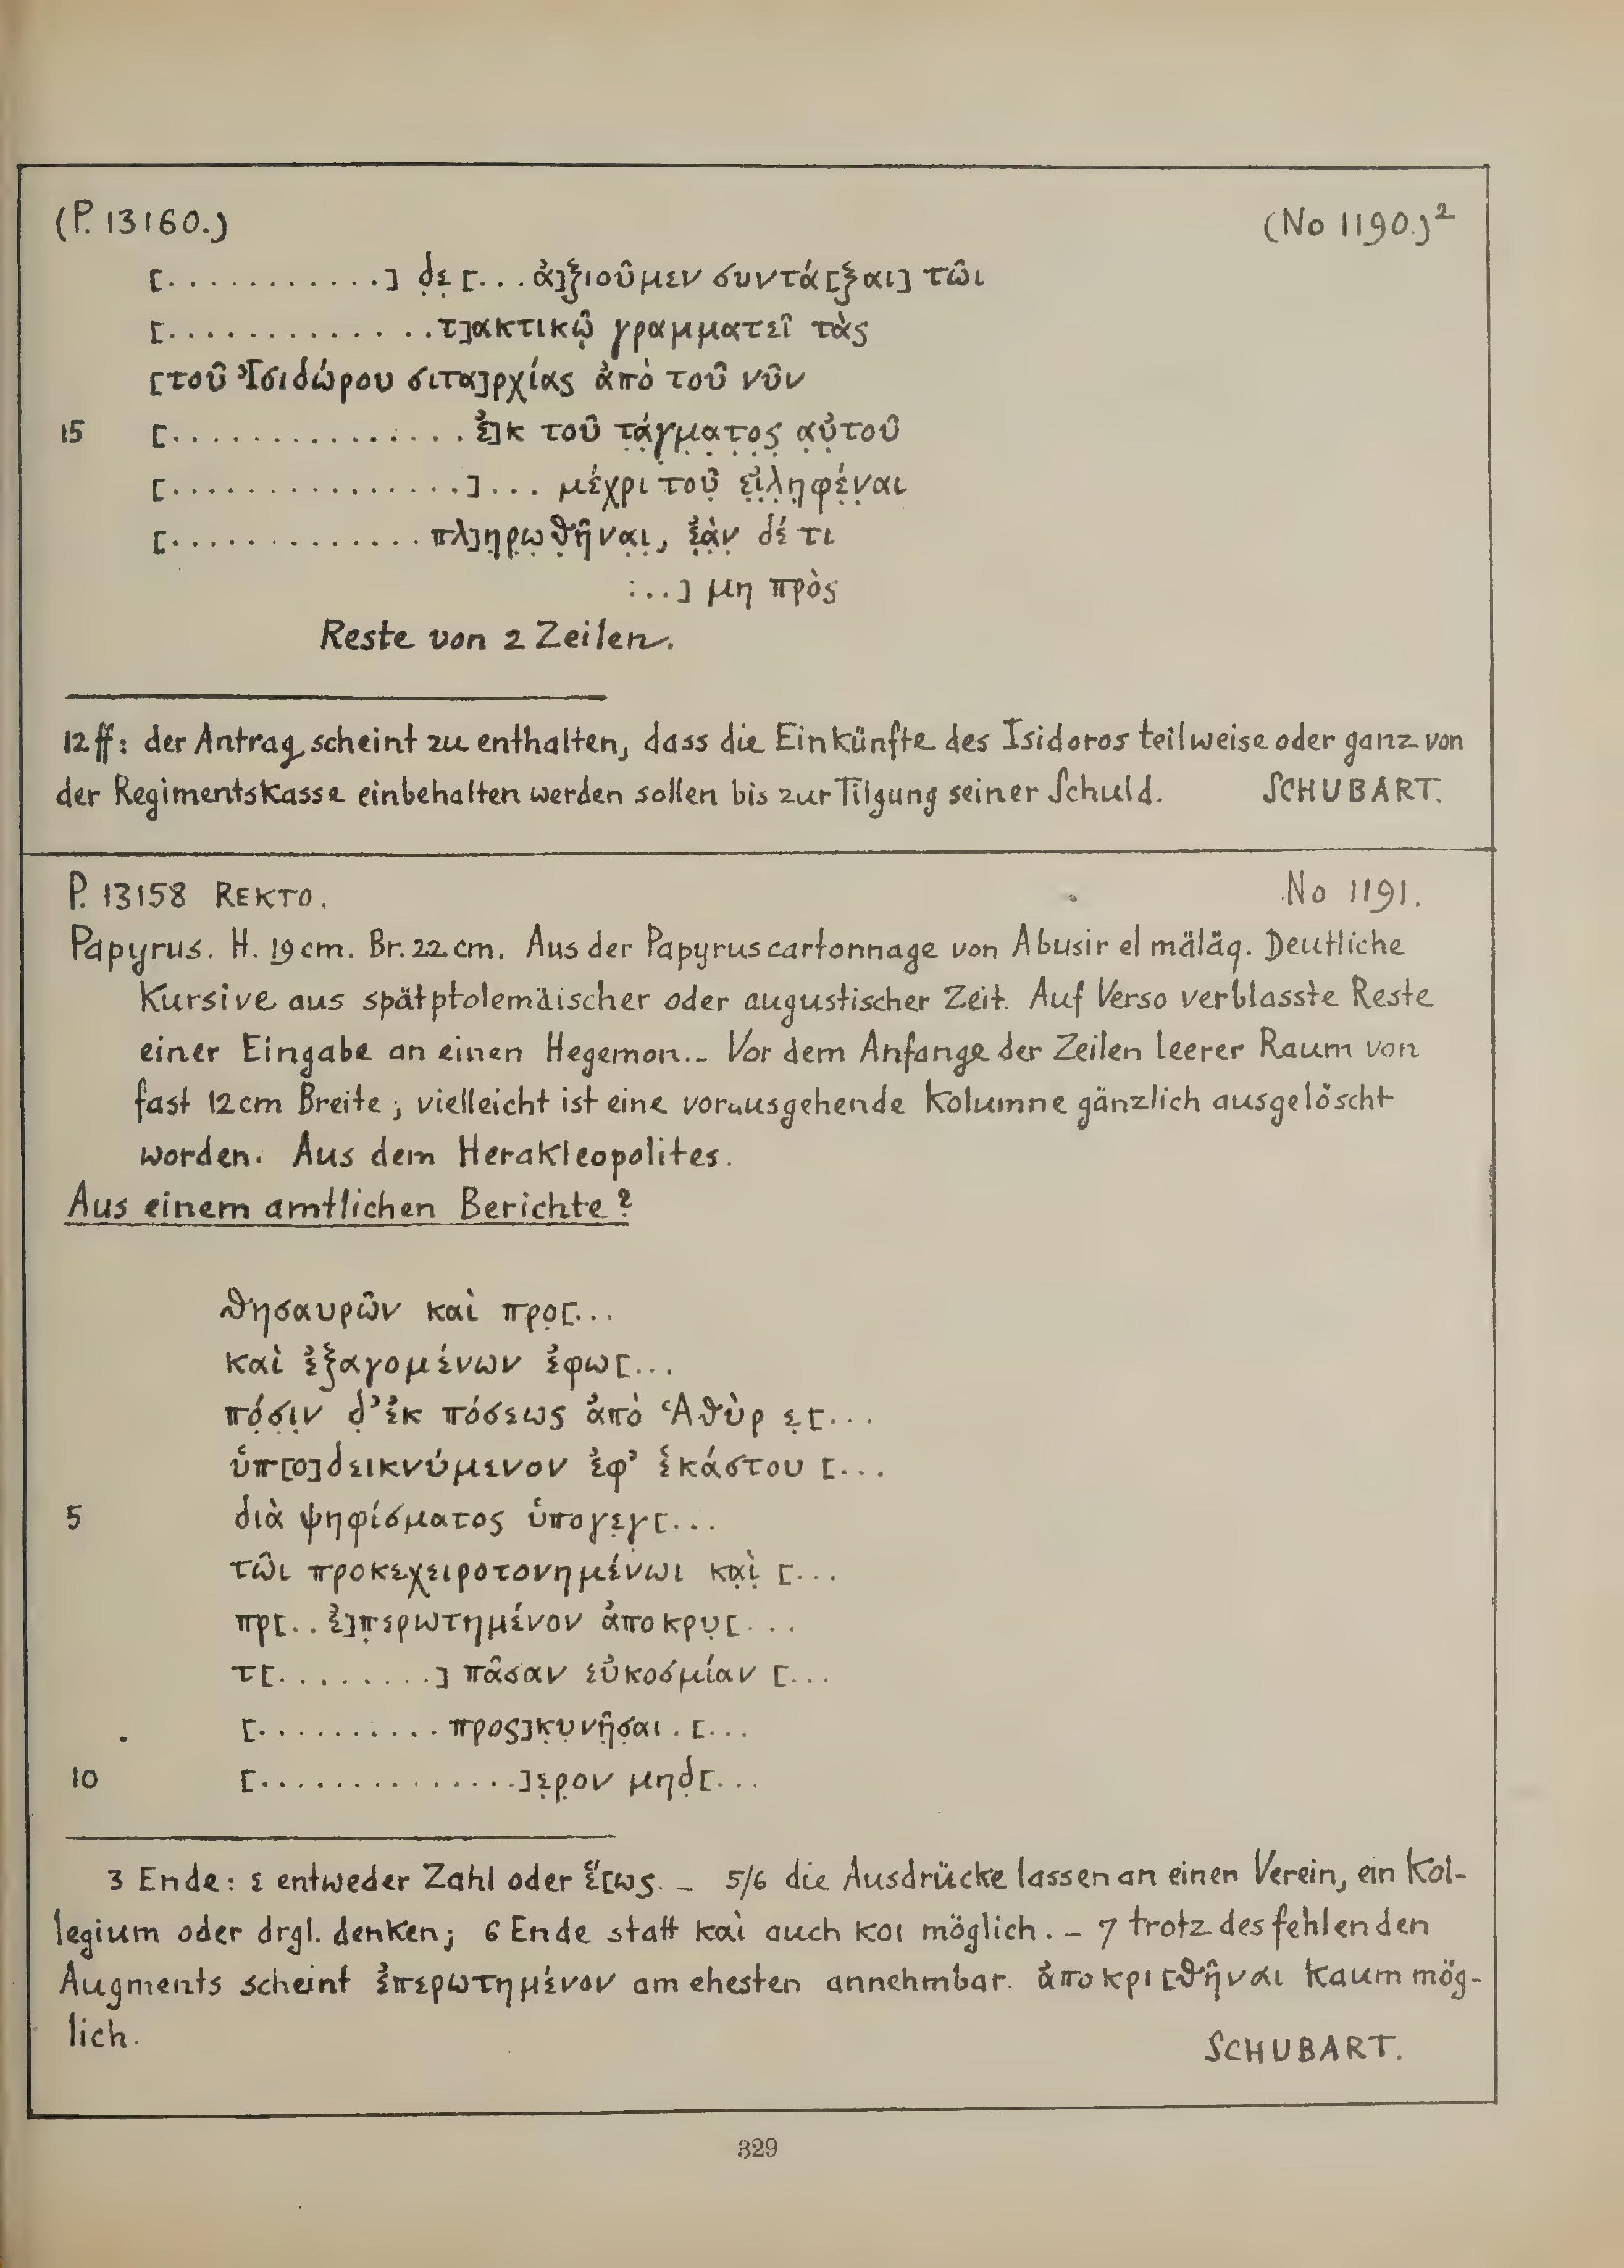 (P. 13160.) (No 1190.)²
[............] δ̣ε̣ [...ἀ]ξ̣ιοῦμεν συντά[ξαι] τῶι
[..............τ]ακτικῷ γραμματεῖ τὰς
[τοῦ Ἰσιδώρου σιτα]ρχίας ἀπὸ τοῦ νῦν
15 [................ἐ]κ τοῦ τ̣ά̣γ̣μ̣α̣τ̣ο̣ς̣ α̣ὐ̣τοῦ
[................]... μέχρι τοῦ̣ ε̣ἰ̣λ̣η̣φέ̣ν̣αι
[..............πλ]η̣ρ̣ω̣θ̣ῆ̣να̣ι̣, ἐ̣ὰ̣ν̣ δέ τι
:..] μη πρὸς
Reste von 2 Zeilen.
12 ff: der Antrag scheint zu enthalten, dass die Einkünfte des Isidoros teilweise oder ganz von
der Regimentskasse einbehalten werden sollen bis zur Tilgung seiner Schuld. SCHUBART.
P. 13158 REKTO. No 1191.
Papyrus. H. 19 cm. Br. 22 cm. Aus der Papyruscartonnage von Abusir el mäläq. Deutliche
Kursive aus spätptolemäischer oder augustischer Zeit. Auf Verso verblasste Reste
einer Eingabe an einen Hegemon.– Vor dem Anfange der Zeilen leerer Raum von
fast 12 cm Breite; vielleicht ist eine vorausgehende Kolumne gänzlich ausgelöscht
worden. Aus dem Herakleopolites.
Aus einem amtlichen Berichte?
θησαυρῶν καὶ πρọ[...
καὶ ἐξαγομένων ἐφω[...
πό̣σ̣ι̣ν δ̣’ἐκ πόσεως ἀπὸ Ἁθὺρ ε̣[...
ὑπ[ο]δεικνύμενον ἐφ’ ἑκάστου [...
5 διὰ ψηφίσματος ὑπογε̣γ[...
τῶι προκεχειροτονημένωι κα̣ὶ̣ [...
πρ[..ἐ]π̣ερωτημένον ἀποκρυ̣[...
τ[.........] πᾶσαν εὐκοσμίαν [...
[...........προς]κ̣υ̣νῆ̣σ̣αι.[...
10 [................]ε̣ρ̣ον μηδ̣[...
3 Ende: ε entweder Zahl oder ἕ[ως. – 5/6 die Ausdrücke lassen an einen Verein, ein Kol-
legium oder drgl. denken; 6 Ende statt καὶ auch κοι möglich. – 7 trotz des fehlenden
Augments scheint ἐπερωτημένον am ehesten annehmbar. ἀποκρι[θῆναι kaum mög-
lich.
SCHUBART.
329